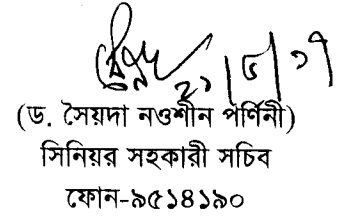 ২১|৫|১৭
(ড. সৈয়দা নওশীন পর্ণিনী)
সিনিয়র সহকারী সচিব
ফোন-৯৫১৪১৯০